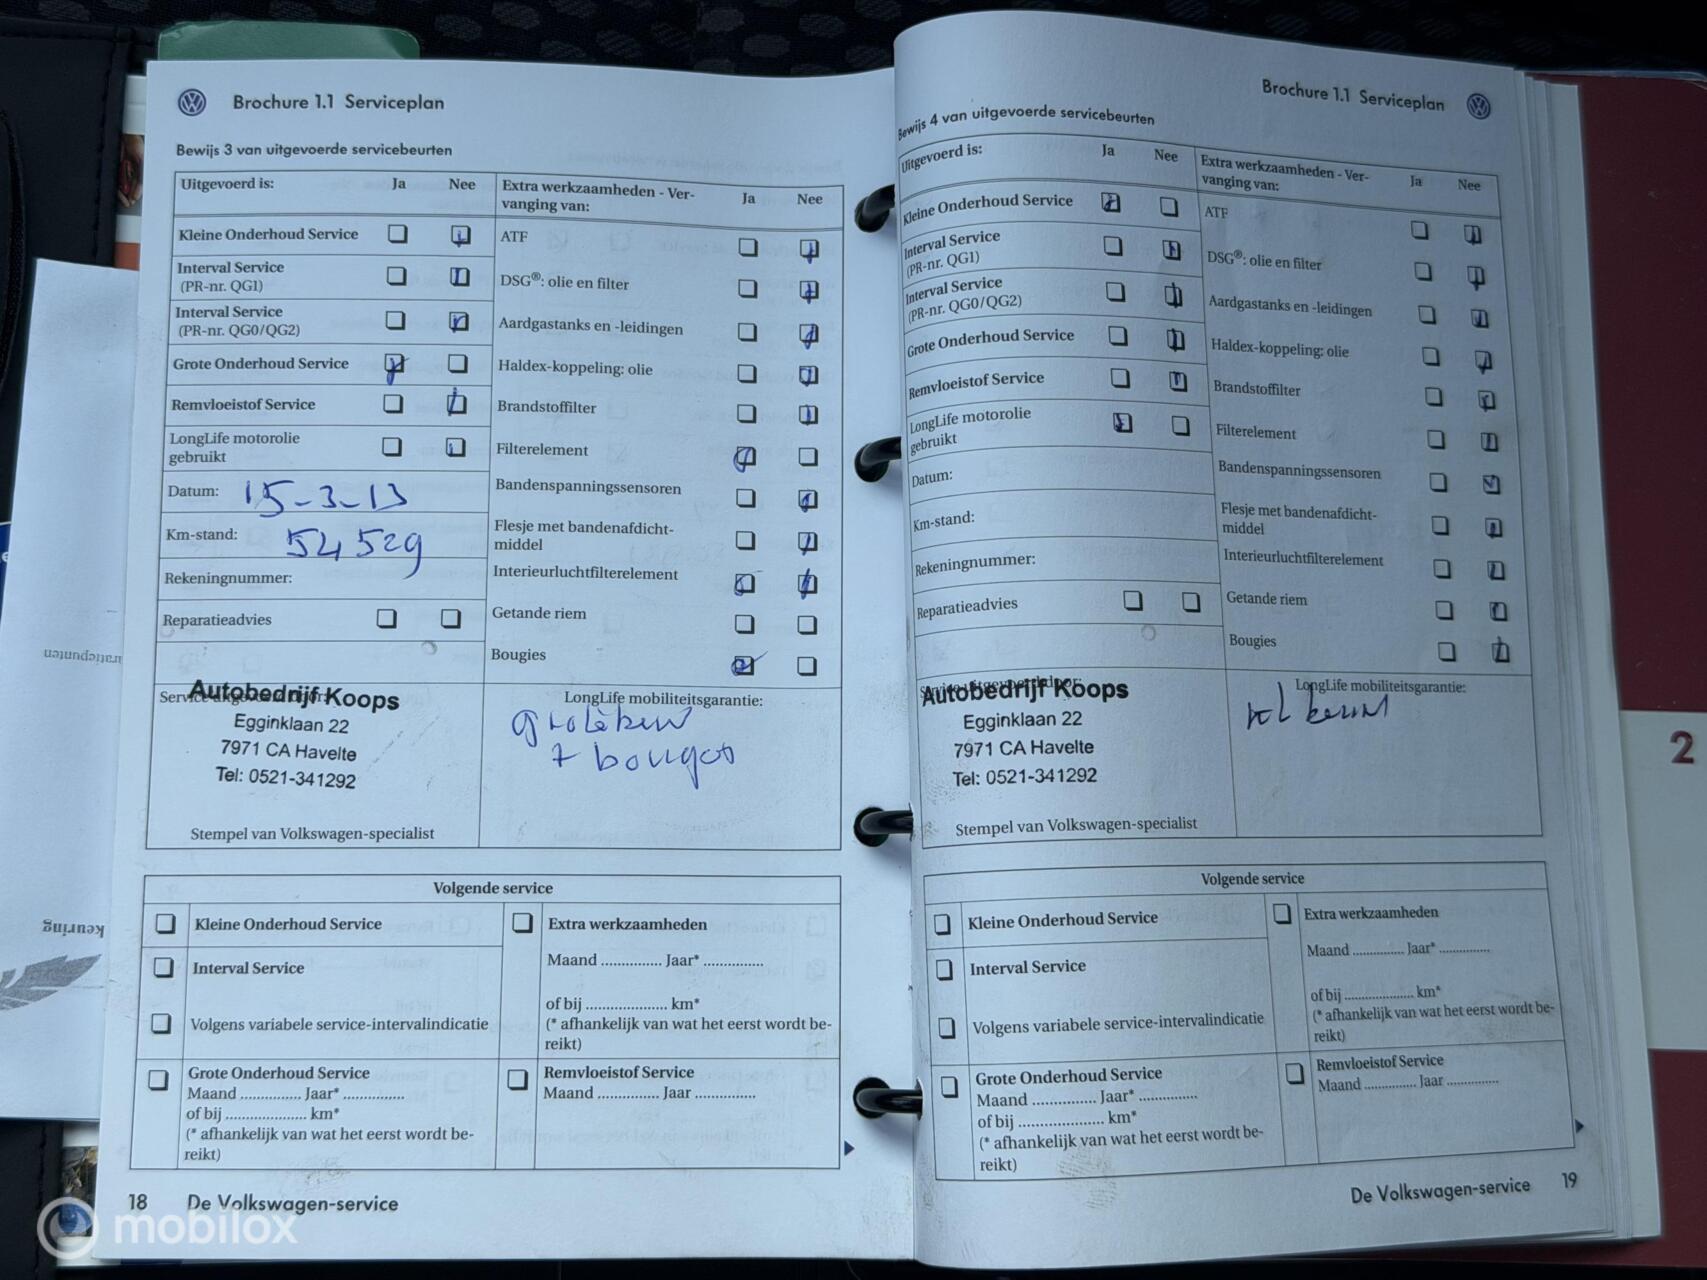 Brochure 1.1 Serviceplan
Bewijs 3 van uitgevoerde servicebeurten
Uitgevoerd is: Ja Nee
Kleine Onderhoud Service
Interval Service
(PR-nr. QG1)
Interval Service
(PR-nr. QG0/QG2)
Grote Onderhoud Service
Remvloeistof Service
LongLife motorolie
gebruikt
Datum: 15-3-13
Km-stand: 54529
Rekeningnummer:
Reparatieadvies
Extra werkzaamheden - Ver-
vanging van: Ja Nee
ATF
DSG®: olie en filter
Aardgastanks en -leidingen
Haldex-koppeling: olie
Brandstoffilter
Filterelement
Bandenspanningssensoren
Flesje met bandenafdicht-
middel
Interieurluchtfilterelement
Getande riem
Bougies
Service uitgevoerd door:
Autobedrijf Koops
Egginklaan 22
7971 CA Havelte
Tel: 0521-341292
Stempel van Volkswagen-specialist
LongLife mobiliteitsgarantie:
Volgende service
Kleine Onderhoud Service
Interval Service
Volgens variabele service-intervalindicatie
Grote Onderhoud Service
Maand ............... Jaar* ...............
of bij .................... km*
(* afhankelijk van wat het eerst wordt be-
reikt)
Extra werkzaamheden
Maand ............... Jaar* ...............
of bij .................... km*
(* afhankelijk van wat het eerst wordt be-
reikt)
Remvloeistof Service
Maand ............... Jaar ...............
18 De Volkswagen-service
Brochure 1.1 Serviceplan
Bewijs 4 van uitgevoerde servicebeurten
Uitgevoerd is: Ja Nee
Kleine Onderhoud Service
Interval Service
(PR-nr. QG1)
Interval Service
(PR-nr. QG0/QG2)
Grote Onderhoud Service
Remvloeistof Service
LongLife motorolie
gebruikt
Datum:
Km-stand:
Rekeningnummer:
Reparatieadvies
Extra werkzaamheden - Ver-
vanging van: Ja Nee
ATF
DSG®: olie en filter
Aardgastanks en -leidingen
Haldex-koppeling: olie
Brandstoffilter
Filterelement
Bandenspanningssensoren
Flesje met bandenafdicht-
middel
Interieurluchtfilterelement
Getande riem
Bougies
Service uitgevoerd door:
Autobedrijf Koops
Egginklaan 22
7971 CA Havelte
Tel: 0521-341292
Stempel van Volkswagen-specialist
LongLife mobiliteitsgarantie:
Volgende service
Kleine Onderhoud Service
Interval Service
Volgens variabele service-intervalindicatie
Grote Onderhoud Service
Maand ............... Jaar* ...............
of bij .................... km*
(* afhankelijk van wat het eerst wordt be-
reikt)
Extra werkzaamheden
Maand ............... Jaar* ...............
of bij .................... km*
(* afhankelijk van wat het eerst wordt be-
reikt)
Remvloeistof Service
Maand ............... Jaar ...............
De Volkswagen-service 19
2
keuring
mobilox